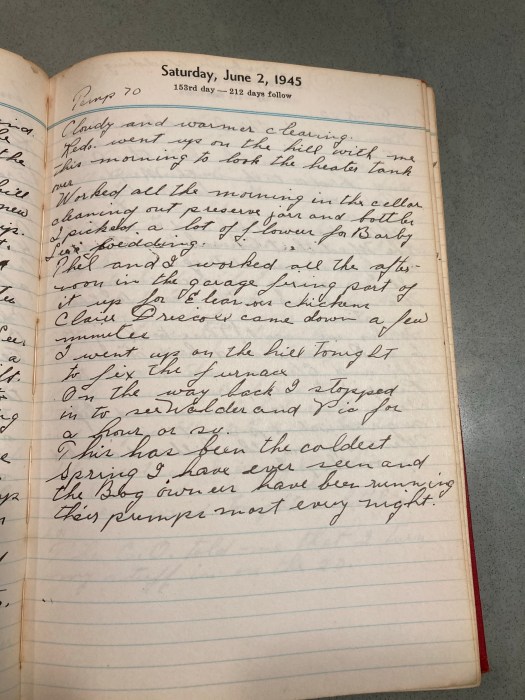 Saturday, June 2, 1945
153rd day — 212 days follow
Temp 70
Cloudy and warmer clearing.
Reds. went up on the hill with me
this morning to look the heater tank
over
Worked all the morning in the cellar
cleaning out preserve jars and bottles
I picked a lot of flower for Barby
wedding.
Phil and I worked all the after-
noon in the garage fixing part of
it up for Eleanors chickens
Claire Driscoll came down a few
minutes
I went up on the hill tonight
to fix the furnace
On the way back I stopped
in to see Walder and Via for
a hour or so.
This has been the coldest
spring I have ever seen and
the Bog owners have been running
their pumps most every night.